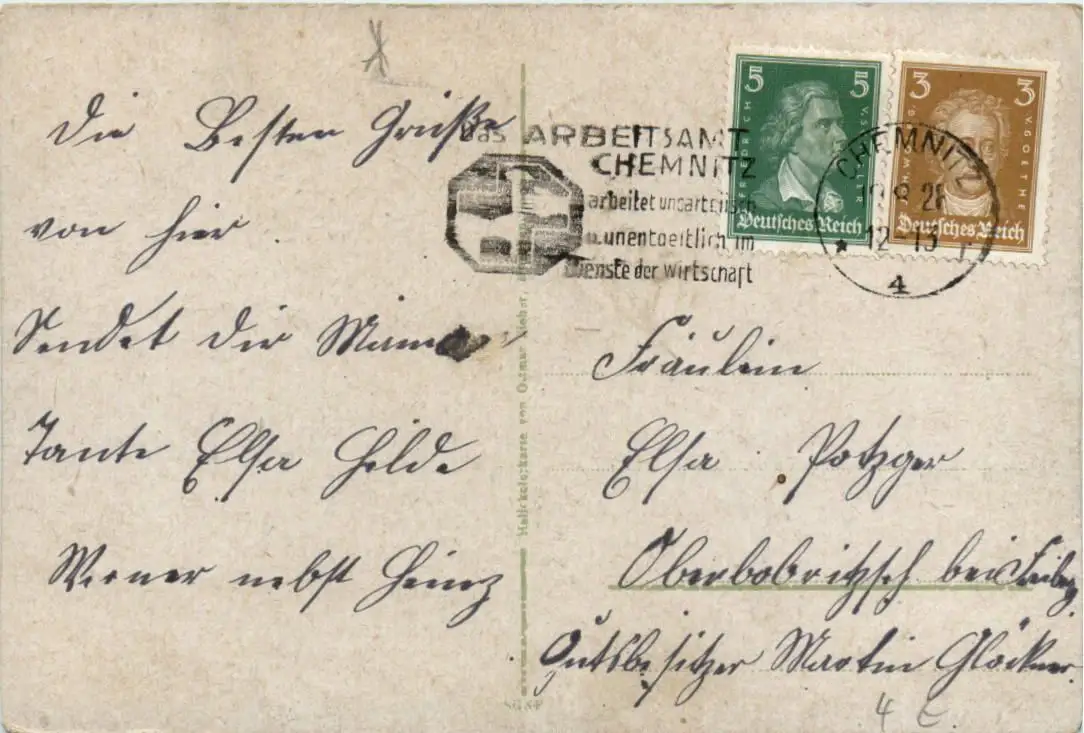 Die Besten Grüße
von hier
Sendet dir Mama
Tante Elsa Hilde
Werner nebst Heinz
Das ARBEITSAMT
CHEMNITZ
arbeitet unparteiisch
u. unentgeltlich im
Dienste der Wirtschaft
5 5
FRIEDRICH V SCHILLER
Deutsches Reich
3 3
J.W.G. V GOETHE
Deutsches Reich
CHEMNITZ
28
* 12-13
4
Fräulein
Elsa Potzger
Oberbobritzsch bei Freiberg
Gutsbesitzer Martin Glöckner.
4 E